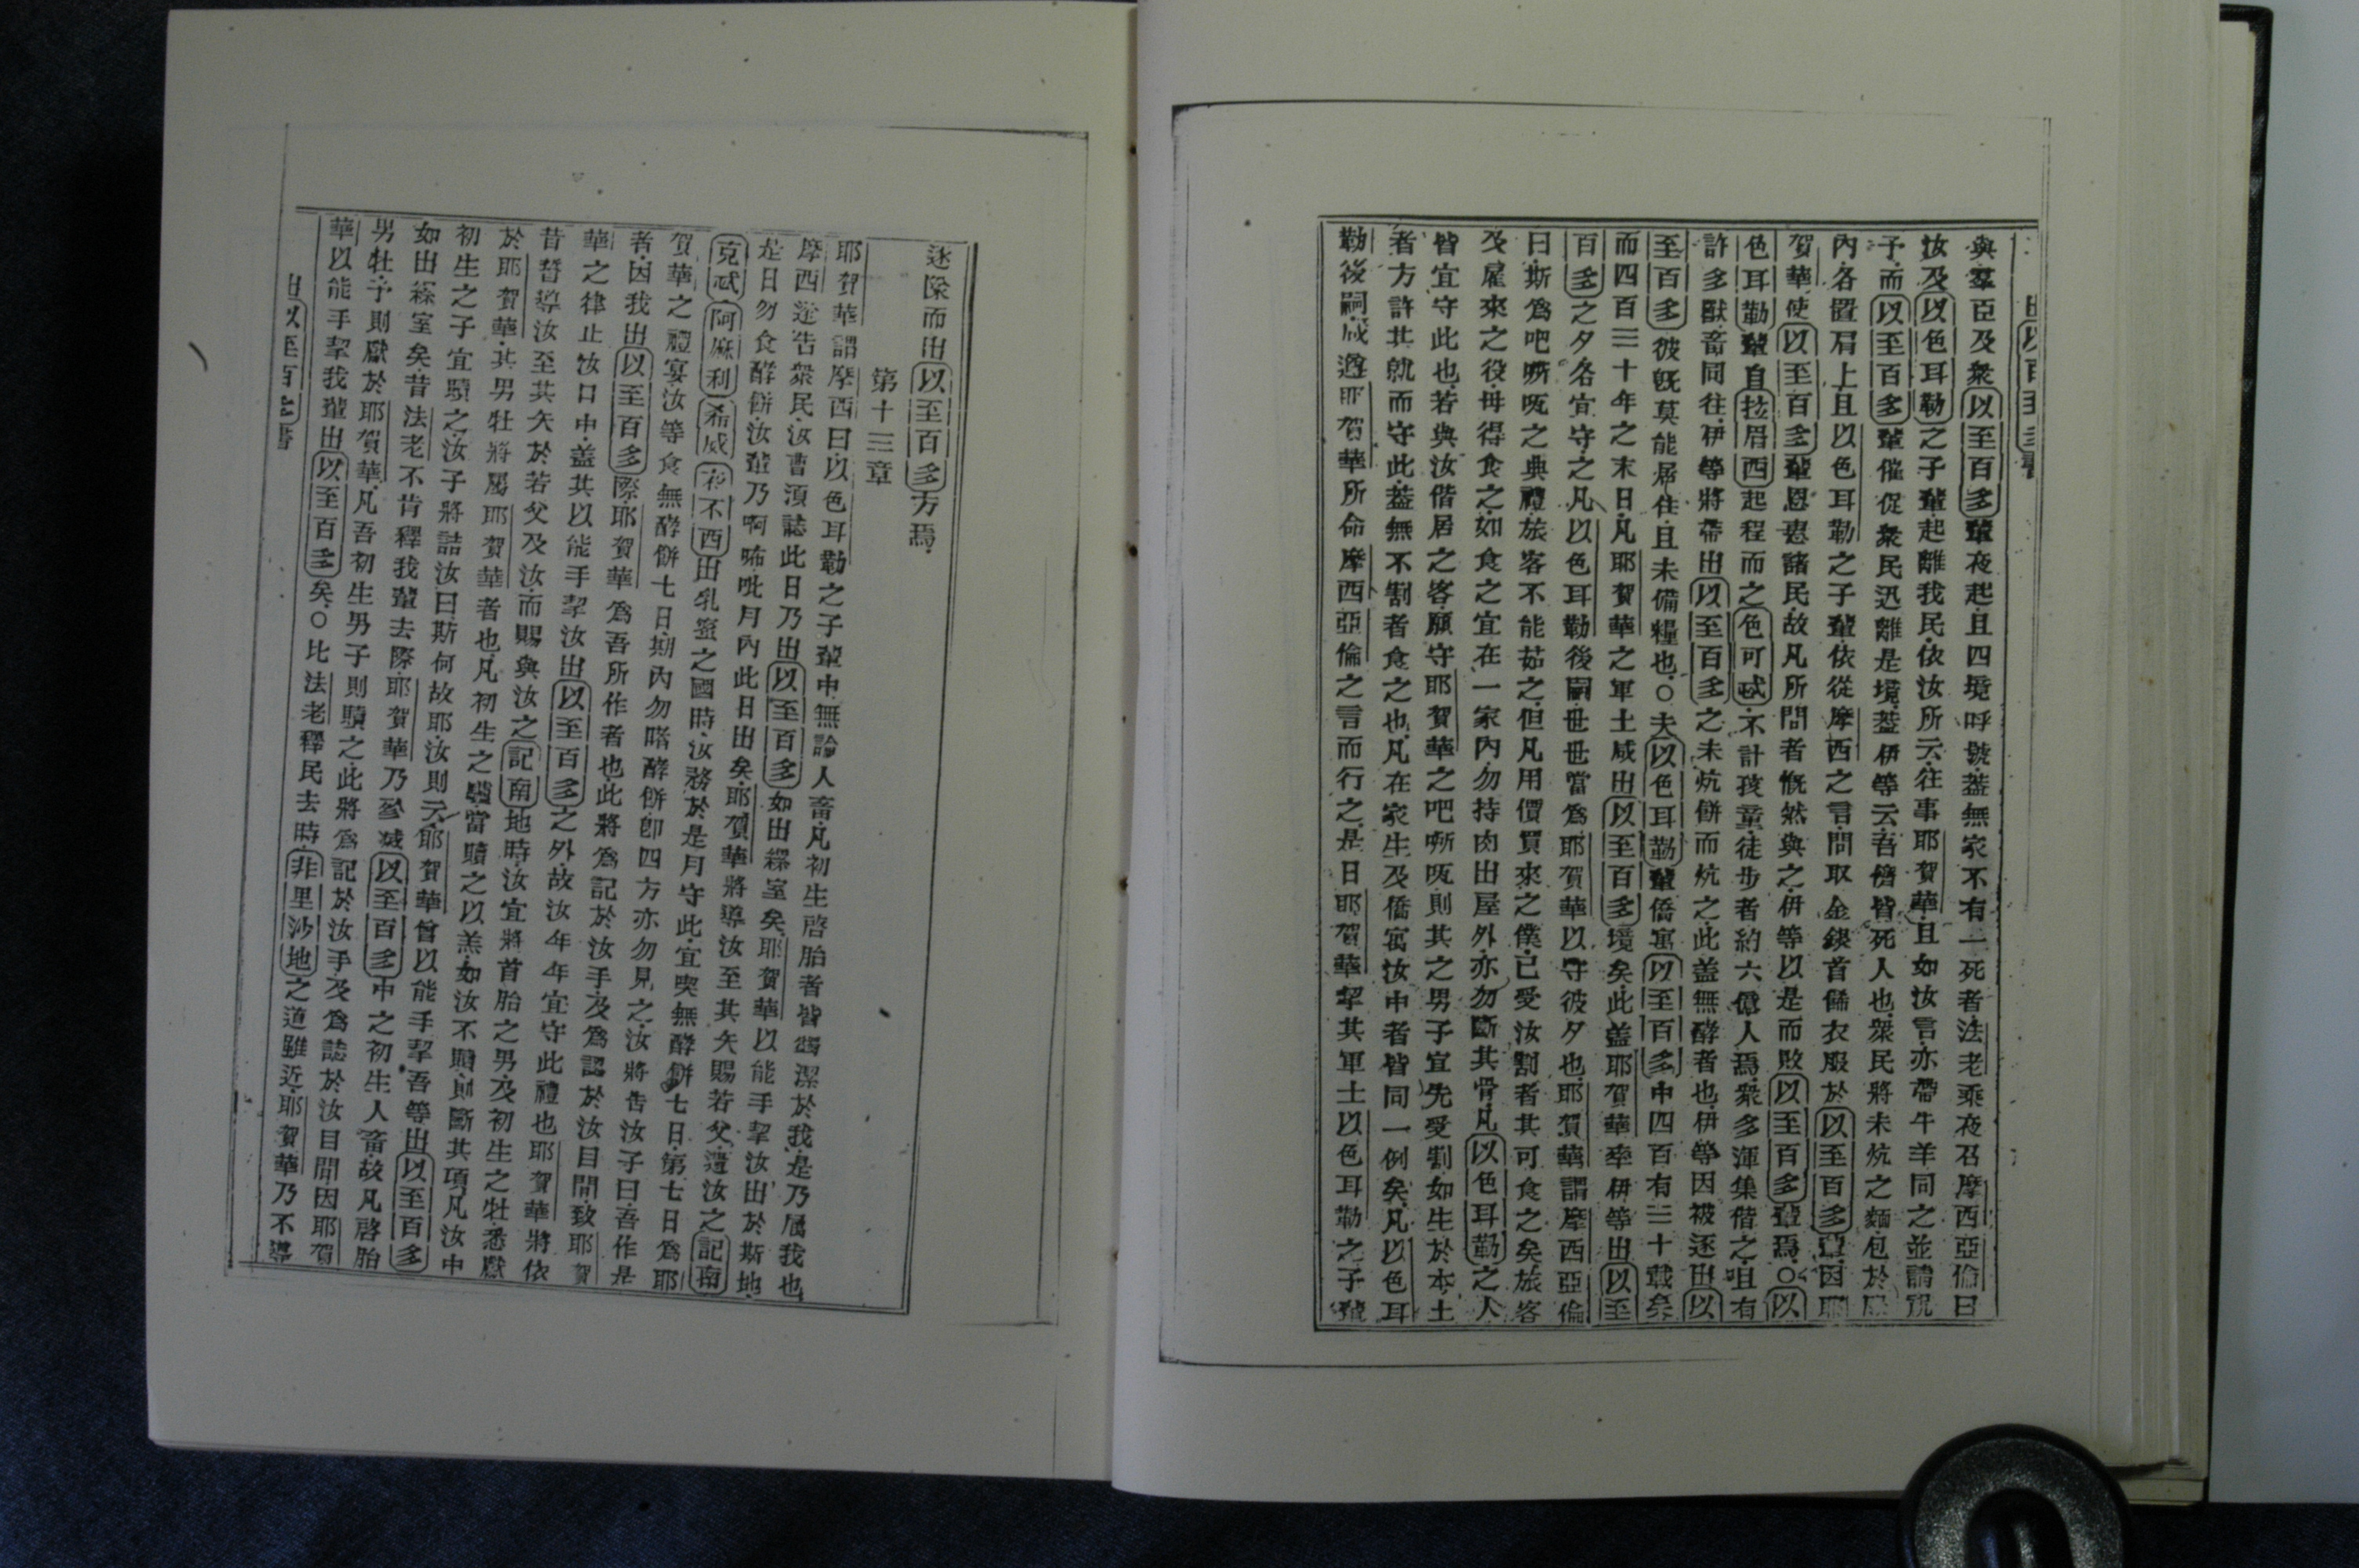 與羣臣及衆以至百多輩夜起且四境呼號蓋無家不有一死者法老乘夜召摩西亞倫曰
汝及以色耳勒之子輩起離我民依汝所云往事耶賀華且如汝言亦帶牛羊同之並請祝
予而以至百多輩催促衆民迅離是境蓋伊等云吾儕皆死人也衆民將未炕之麵包於
內各置肩上且以色耳勒之子輩依從摩西之言問取金銀首飾衣服於以至百多輩因耶
賀華使以至百多輩恩惠諸民故凡所問者慨然與之伊等以是而敗以至百多輩焉○以
色耳勒輩自拉眉西起程而之色可忒不計孩童徒步者約六億人焉衆多渾集偕之且有
許多獸畜同往伊等將帶出以至百多之未炕餅而炕之此蓋無酵者也伊等因被逐出以
至百多彼旣莫能居住且未備糧也○夫以色耳勒輩僑寓以至百多中四百有三十載矣
而四百三十年之末日凡耶賀華之軍士咸出以至百多境矣此蓋耶賀華率伊等出以至
百多之夕各宜守之凡以色耳勒後嗣世世當爲耶賀華以守彼夕也耶賀華謂摩西亞倫
曰斯爲吧嘶㕮之典禮旅客不能茹之但凡用價買來之僕已受汝割者其可食之矣旅客
及雇來之役毋得食之如食之宜在一家內勿持肉出屋外亦勿斷其骨凡以色耳勒之人
皆宜守此也若與汝偕居之客願守耶賀華之吧嘶㕮則其之男子宜先受割如生於本土
者方許其就而守此蓋無不割者食之也凡在家生及僑寓汝中者皆同一例矣凡以色耳
勒後嗣咸遵耶賀華所命摩西亞倫之言而行之是日耶賀華挈其軍士以色耳勒之子輩
逐隊而出以至百多方焉
第十三章
耶賀華謂摩西曰以色耳勒之子輩中無論人畜凡初生啓胎者皆蠲潔於我是乃屬我也
摩西遂告衆民汝曹須誌此日乃出以至百多如出縲室矣耶賀華以能手挈汝出於斯地
是日勿食酵餅汝輩乃啊唏吡月內此日出矣耶賀華將導汝至其矢賜若父遺汝之記南
克忒阿麻利希威不西田乳蜜之國時汝務於是月守此宜喫無酵餅七日第七日爲耶
賀華之禮宴汝等食無酵餅七日期內勿喀酵餅卽四方亦勿見之汝將告汝子曰吾作是
者因我出以至百多際耶賀華爲吾所作者也此將爲記於汝手及爲誌於汝目間致耶賀
華之律止汝口中蓋其以能手挈汝出以至百多之外故汝年年宜守此禮也耶賀華將依
昔誓導汝至其矢於若父及汝而賜與汝之記南地時汝宜將首胎之男及初生之牡悉獻
於耶賀華其男牡將屬耶賀華者也凡初生之驢當贖之以羔如汝不贖則斷其項凡汝中
初生之子宜贖之汝子將詰汝曰斯何故耶汝則云耶賀華曾以能手挈吾等出以至百多
如出縲室矣昔法老不肯釋我輩去際耶賀華乃殄滅以至百多中之初生人畜故凡啓胎
男牡予則獻於耶賀華凡吾初生男子則贖之此將爲記於汝手及爲誌於汝目間因耶賀
華以能手挈我輩出以至百多矣○比法老釋民去時非里沙地之道雖近耶賀華乃不導